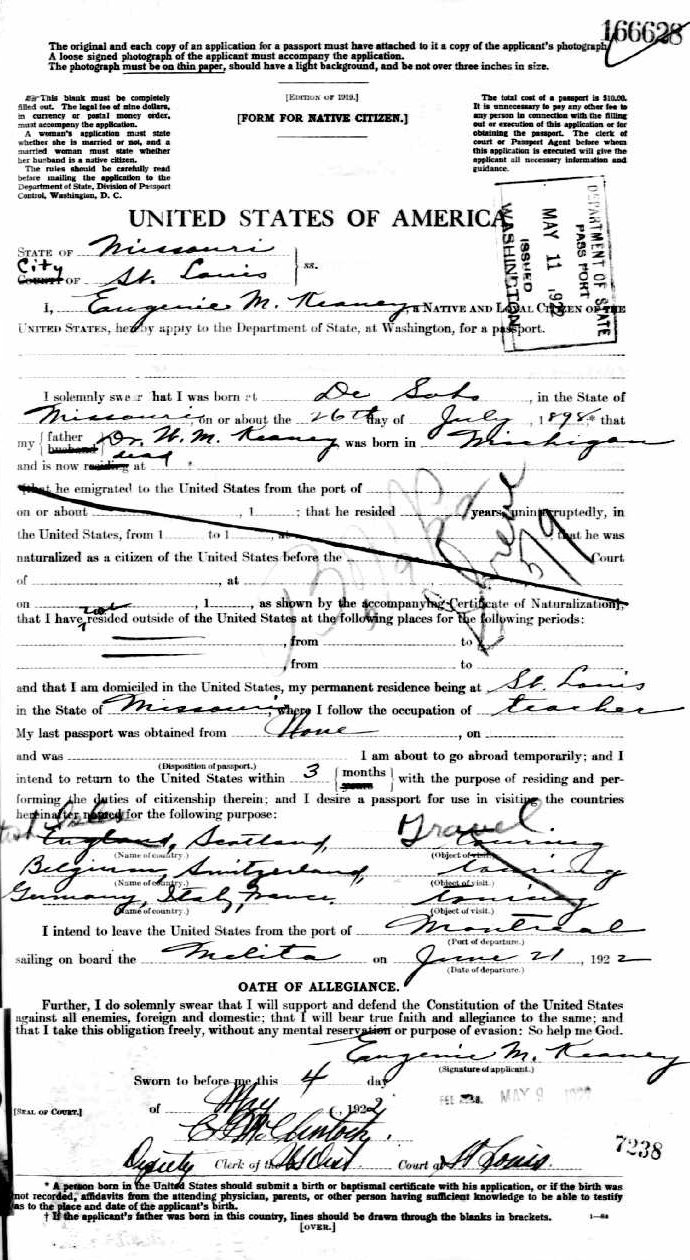 166628
The original and each copy of an application for a passport must have attached to it a copy of the applicant's photograph.
A loose signed photograph of the applicant must accompany the application.
The photograph must be on thin paper, should have a light background, and be not over three inches in size.
This blank must be completely
filled out. The legal fee of nine dollars,
in currency or postal money order,
must accompany the application.
A woman's application must state
whether she is married or not, and a
married woman must state whether
her husband is a native citizen.
The rules should be carefully read
before mailing the application to the
Department of State, Division of Passport
Control, Washington, D. C.
[EDITION OF 1919.]
[FORM FOR NATIVE CITIZEN.]
The total cost of a passport is $10.00.
It is unnecessary to pay any other fee to
any person in connection with the filling
out or execution of this application or for
obtaining the passport. The clerk of
court or Passport Agent before whom
this application is executed will give the
applicant all necessary information and
guidance.
UNITED STATES OF AMERICA,
DEPARTMENT OF STATE
PASSPORT
MAY 11 1922
ISSUED
WASHINGTON
STATE OF Missouri
City
COUNTY OF St. Louis ss.
I, Eugenie M. Keaney, a NATIVE AND LOYAL CITIZEN OF THE
UNITED STATES, hereby apply to the Department of State, at Washington, for a passport.
I solemnly swear that I was born at De Soto, in the State of
Missouri, on or about the 26th day of July, 1898* that
my {father husband} Dr. W. M. Keaney was born in Michigan
and is now residing at dead
(that he emigrated to the United States from the port of
on or about , 1 ; that he resided years, uninterruptedly, in
the United States, from 1 to 1 , at that he was
naturalized as a citizen of the United States before the Court
of , at
on , 1 , as shown by the accompanying Certificate of Naturalization);
that I have not resided outside of the United States at the following places for the following periods:
, from to
, from to
and that I am domiciled in the United States, my permanent residence being at St. Louis
in the State of Missouri, where I follow the occupation of teacher
My last passport was obtained from None , on
and was I am about to go abroad temporarily; and I
(Disposition of passport.)
intend to return to the United States within 3 {months with the purpose of residing and per-
forming the duties of citizenship therein; and I desire a passport for use in visiting the countries
hereinafter named for the following purpose:
Isles
England, Scotland, Travel touring
(Name of country.) (Object of visit.)
Belgium, Switzerland, touring
(Name of country.) (Object of visit.)
Germany, Italy, France. touring
(Name of country.) (Object of visit.)
I intend to leave the United States from the port of Montreal
(Port of departure.)
sailing on board the Melita on June 21, 1922
(Date of departure.)
OATH OF ALLEGIANCE.
Further, I do solemnly swear that I will support and defend the Constitution of the United States
against all enemies, foreign and domestic; that I will bear true faith and allegiance to the same; and
that I take this obligation freely, without any mental reservation or purpose of evasion: So help me God.
Eugenie M. Keaney
(Signature of applicant.)
Sworn to before me this 4 day
[SEAL OF COURT.] of May, 1922
MAY 9 1922
C G McClintock
7238
Deputy Clerk of the US Dist Court at St Louis.
* A person born in the United States should submit a birth or baptismal certificate with his application, or if the birth was
not recorded, affidavits from the attending physician, parents, or other person having sufficient knowledge to be able to testify
as to the place and date of the applicant's birth.
† If the applicant's father was born in this country, lines should be drawn through the blanks in brackets.
[OVER.]